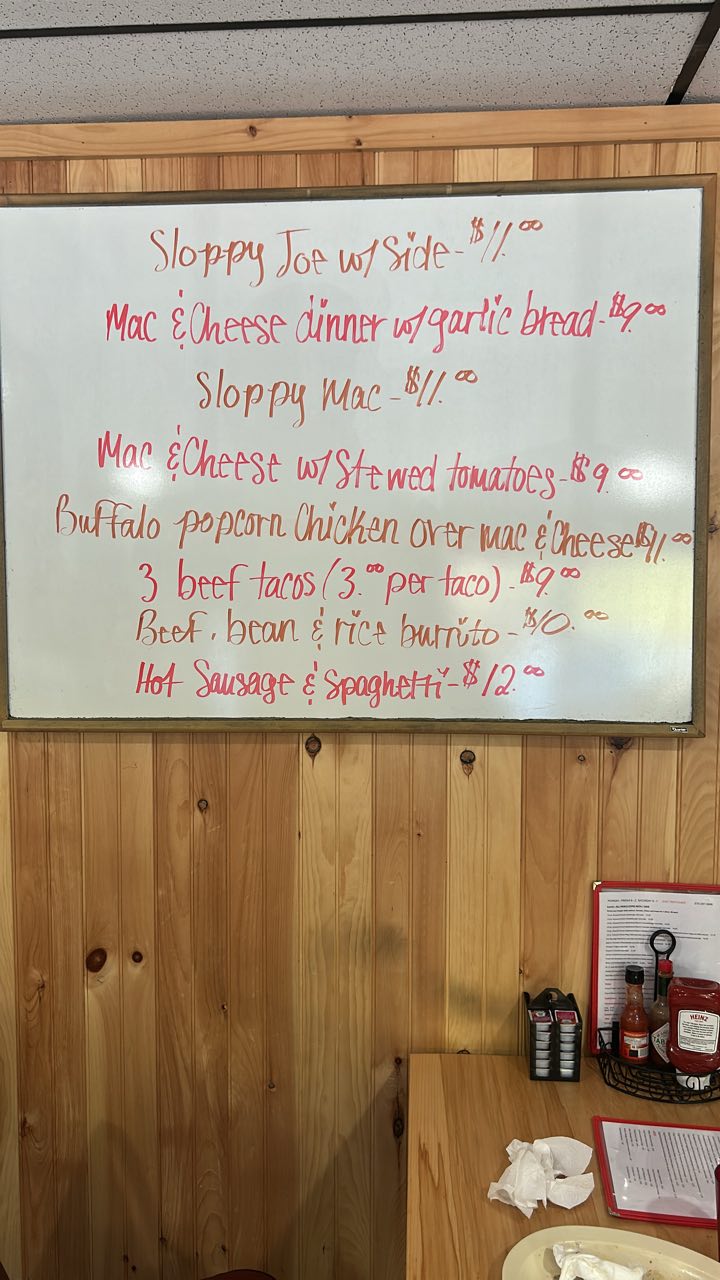 Sloppy Joe w/ Side - $11.00
Mac & Cheese dinner w/ garlic bread - $9.00
Sloppy Mac - $11.00
Mac & Cheese w/ Stewed tomatoes - $9.00
Buffalo popcorn Chicken over mac & Cheese $11.00
3 beef tacos (3.00 per taco) - $9.00
Beef, bean & rice burrito - $10.00
Hot Sausage & Spaghetti - $12.00
HEINZ